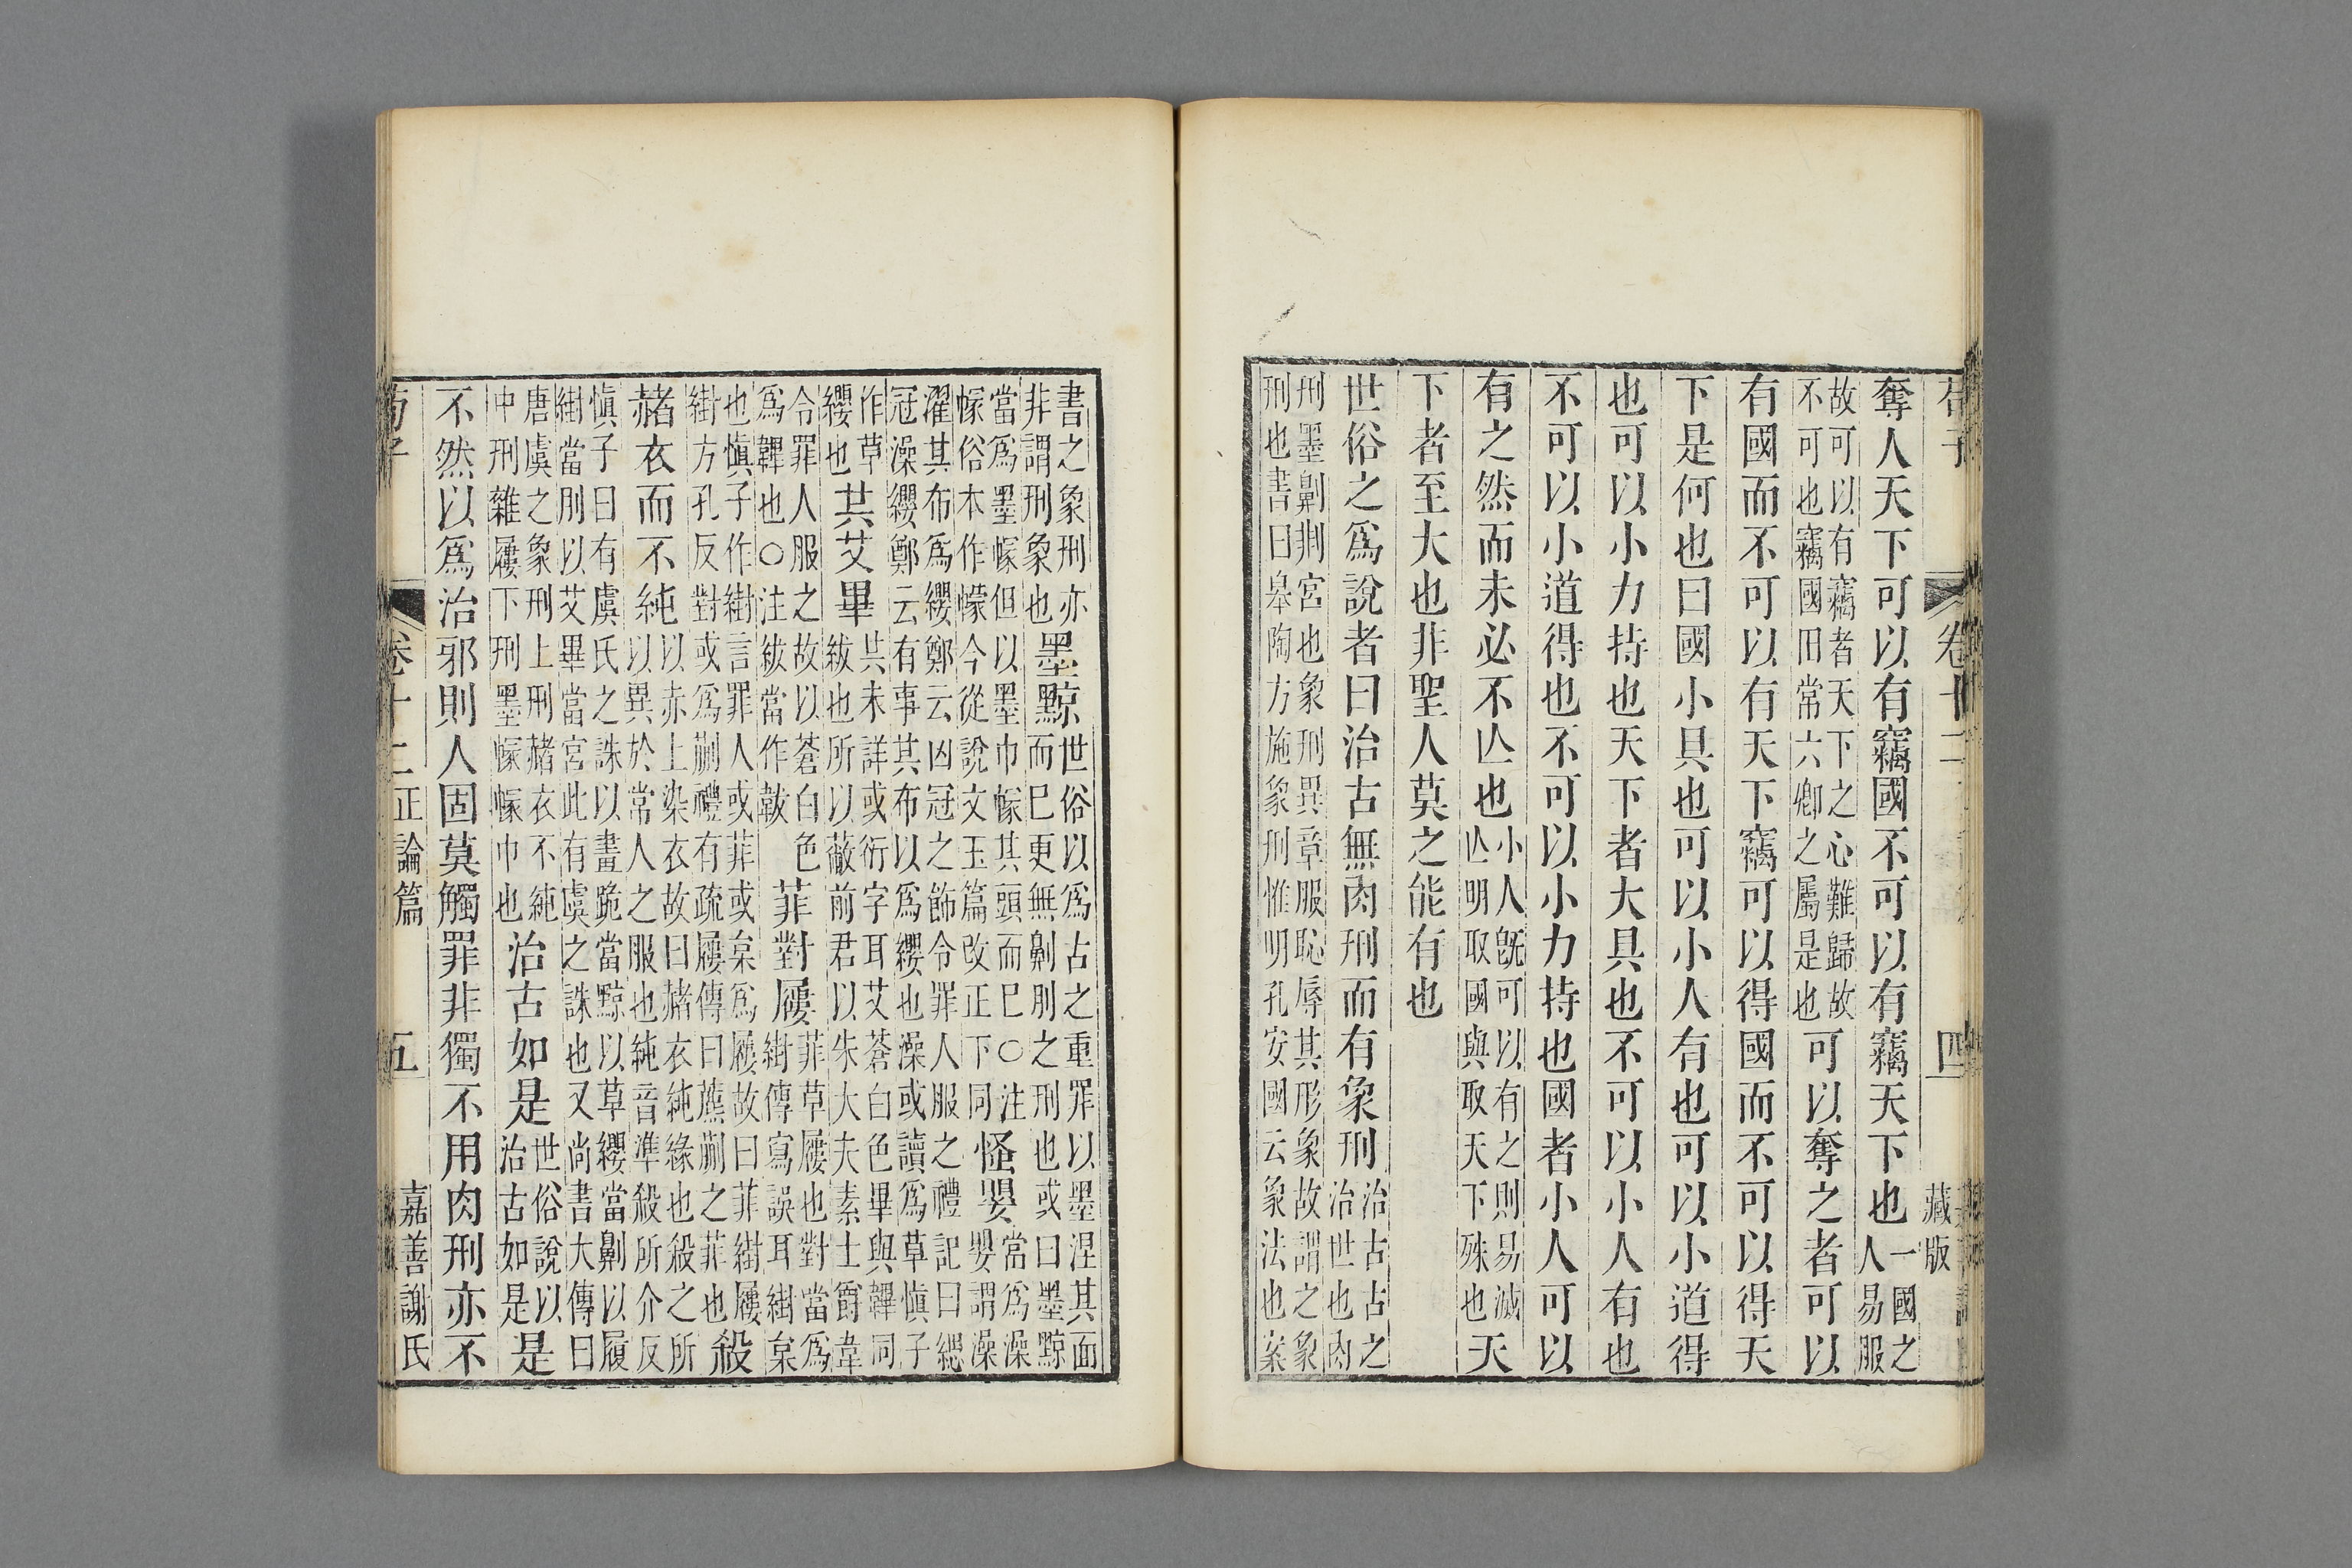 荀子 卷十二 四 藏版
奪人天下可以有竊國不可以有竊天下也一國之人易服
故可以有竊者天下之心難歸故不可也竊國田常六卿之屬是也可以奪之者可以
有國而不可以有天下竊可以得國而不可以得天
下是何也曰國小具也可以小人有也可以小道得
也可以小力持也天下者大具也不可以小人有也
不可以小道得也不可以小力持也國者小人可以
有之然而未必不亾也小人旣可以有之則易滅亾明取國與取天下殊也天
下者至大也非聖人莫之能有也
世俗之爲說者曰治古無肉刑而有象刑治古古之治世也肉
刑墨劓剕宮也象刑異章服恥辱其形象故謂之象刑也書曰皋陶方施象刑惟明孔安國云象法也案
書之象刑亦非謂刑象也墨黥世俗以爲古之重罪以墨涅其面而巳更無劓刖之刑也或曰墨黥
當爲墨幪但以墨巾幪其頭而巳○注幪俗本作幪今從說文玉篇改正下同慅嬰當爲澡嬰謂澡
濯其布爲纓鄭云凶冠之飾令罪人服之禮記曰緦冠澡纓鄭云有事其布以爲纓也澡或讀爲草愼子
作草纓也共艾畢共未詳或衍字耳艾蒼白色畢與韠同紱也所以蔽前君以朱大夫素士爵韋
令罪人服之故以蒼白色爲韠也○注紱當作韍菲對屨菲草屨也對當爲紼傳寫誤耳紼枲
也愼子作紼言罪人或菲或枲爲屨故曰菲紼屨紼方孔反對或爲蒯禮有疏屨傳曰藨蒯之菲也殺
赭衣而不純以赤上染衣故曰赭衣純緣也殺之所以異於常人之服也純音準殺所介反
愼子曰有虞氏之誅以畫跪當黥以草纓當劓以履紼當刖以艾畢當宮此有虞之誅也又尚書大傳曰
唐虞之象刑上刑赭衣不純中刑雜屨下刑墨幪幪巾也治古如是世俗說以治古如是是
不然以爲治邪則人固莫觸罪非獨不用肉刑亦不
荀子 卷十二 正論篇 五 嘉善謝氏